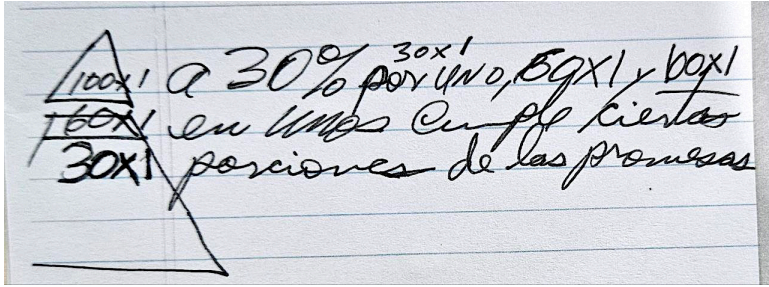 30x1
100x1 a 30% por uno, 60x1 y 60x1
60x1 en unos cumple ciertas
30x1 porciones de las promesas